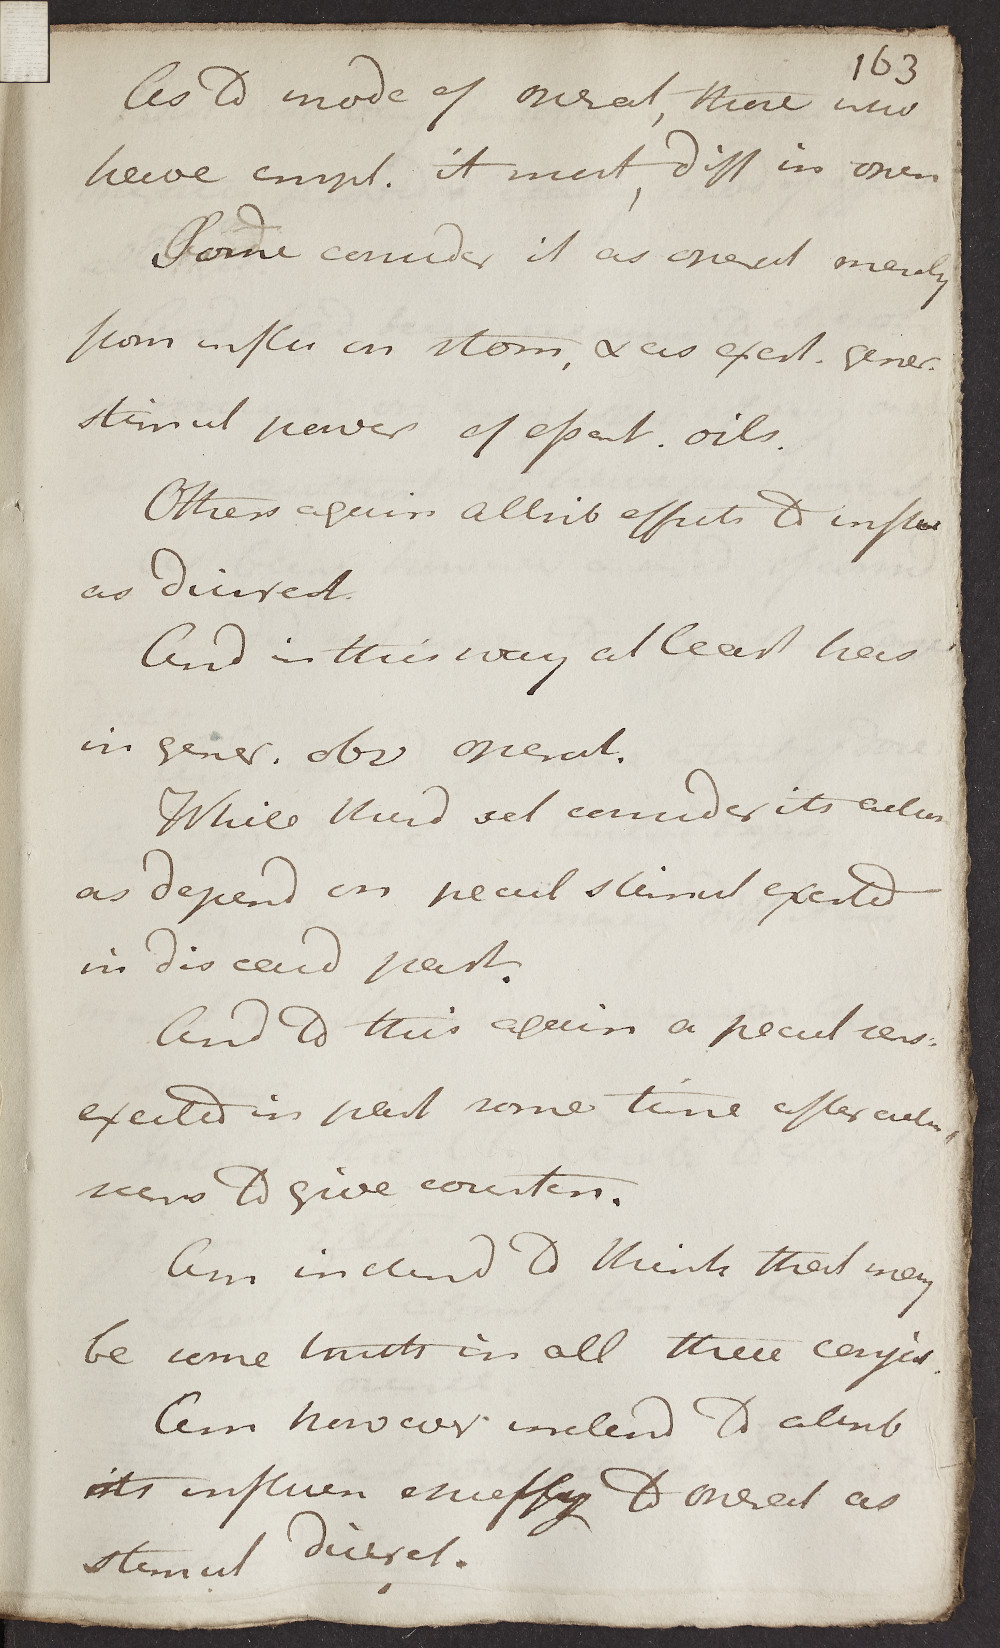 163
As to mode of operat, those who
have empl. it most, diff in opin
Some consider it as operat merely
from influ on stom, & as exert. gener.
stimul power of essent. oils.
Others again attrib effects to influ
as diuret.
And in this way at least has
in gener. obv operat.
While third set consider its action
as depend on pecul stimul exerted
in diseasd part.
And to this again a pecul sens.
excited in part some time after action,
seems to give counten.
Am inclend to think that may
be some truth in all these conject.
Am however inclend to atrib
its influen chiefly to operat as
stimul diuret.